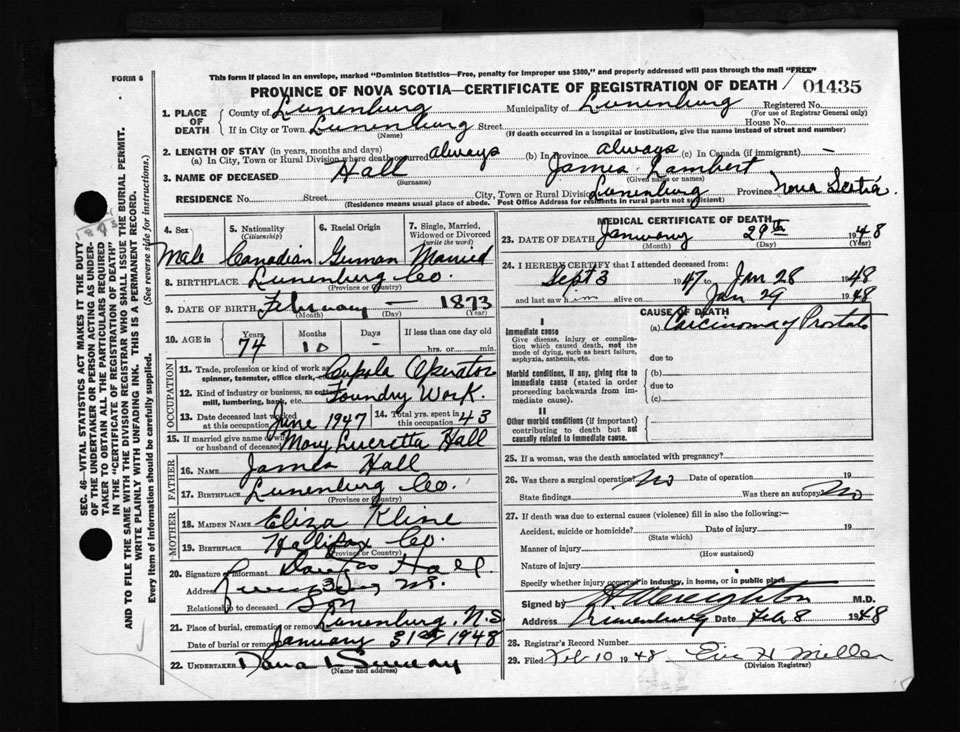 FORM 6
This form if placed in an envelope, marked "Dominion Statistics—Free, penalty for improper use $300," and properly addressed will pass through the mail "FREE"
PROVINCE OF NOVA SCOTIA—CERTIFICATE OF REGISTRATION OF DEATH / 01435
1. PLACE OF DEATH
County of Lunenburg Municipality of Lunenburg Registered No.
(For use of Registrar General only)
If in City or Town Lunenburg Street House No.
(Name) (If death occurred in a hospital or institution, give the name instead of street and number)
2. LENGTH OF STAY (in years, months and days)
(a) In City, Town or Rural Division where death occurred always (b) In Province always (c) In Canada (if immigrant) —
3. NAME OF DECEASED Hall James Lambert
(Surname) (Given name or names)
RESIDENCE No. Street City, Town or Rural Division Lunenburg Province Nova Scotia.
(Residence means usual place of abode. Post Office Address for residents in rural parts not sufficient)
4. Sex 5. Nationality (Citizenship) 6. Racial Origin 7. Single, Married, Widowed or Divorced (write the word)
Male Canadian German Married
8. BIRTHPLACE Lunenburg Co.
(Province or Country)
9. DATE OF BIRTH February — 1873
(Month) (Day) (Year)
10. AGE Years Months Days If less than one day old
74 10 - hrs. or min.
OCCUPATION
11. Trade, profession or kind of work as spinner, teamster, office clerk, Cupola Operator
12. Kind of industry or business, as cotton mill, lumbering, bank, etc. Foundry Work.
13. Date deceased last worked at this occupation June 1947 14. Total yrs. spent in this occupation 43
15. If married give name of wife or husband of deceased Mary Lueretta Hall
FATHER
16. NAME James Hall
17. BIRTHPLACE Lunenburg Co.
(Province or Country)
MOTHER
18. MAIDEN NAME Eliza Kline
19. BIRTHPLACE Hallifax Co.
(Province or Country)
20. Signature of informant Hall.
Address
Relationship to deceased Son
21. Place of burial, cremation or removal Lunenburg, N.S.
Date of burial or removal January 31st 1948
22. UNDERTAKER Dana L Sweeny
(Name and address)
MEDICAL CERTIFICATE OF DEATH
23. DATE OF DEATH January 29th 1948
(Month) (Day) (Year)
24. I HEREBY CERTIFY that I attended deceased from:
Sept 3 1947 to Jan 28 1948
and last saw him alive on Jan 29 1948
CAUSE OF DEATH
I
Immediate cause (a) Carcinoma of Prostate
Give disease, injury or complication which caused death, not the mode of dying, such as heart failure, asphyxia, asthenia, etc. due to
Morbid conditions, if any, giving rise to immediate cause (stated in order proceeding backwards from immediate cause). (b)
due to
(c)
II
Other morbid conditions (if important) contributing to death but not causally related to immediate cause.
25. If a woman, was the death associated with pregnancy?
26. Was there a surgical operation? No Date of operation 19
State findings Was there an autopsy? No
27. If death was due to external causes (violence) fill in also the following:—
Accident, suicide or homicide? Date of injury 19
(State which)
Manner of injury
(How sustained)
Nature of injury
Specify whether injury occurred in industry, in home, or in public place
Signed by Creighton M.D.
Address Lunenburg Date Feb 8 1948
28. Registrar's Record Number
29. Filed Feb 10 1948 H Miller
(Division Registrar)
SEC. 46—VITAL STATISTICS ACT MAKES IT THE DUTY
OF THE UNDERTAKER OR PERSON ACTING AS UNDERTAKER
TO OBTAIN ALL THE PARTICULARS REQUIRED
IN THE "CERTIFICATE OF REGISTRATION OF DEATH"
AND TO FILE THE SAME WITH THE DIVISION REGISTRAR WHO SHALL ISSUE THE BURIAL PERMIT.
WRITE PLAINLY WITH UNFADING INK. THIS IS A PERMANENT RECORD.
Every item of information should be carefully supplied. (See reverse side for instructions).